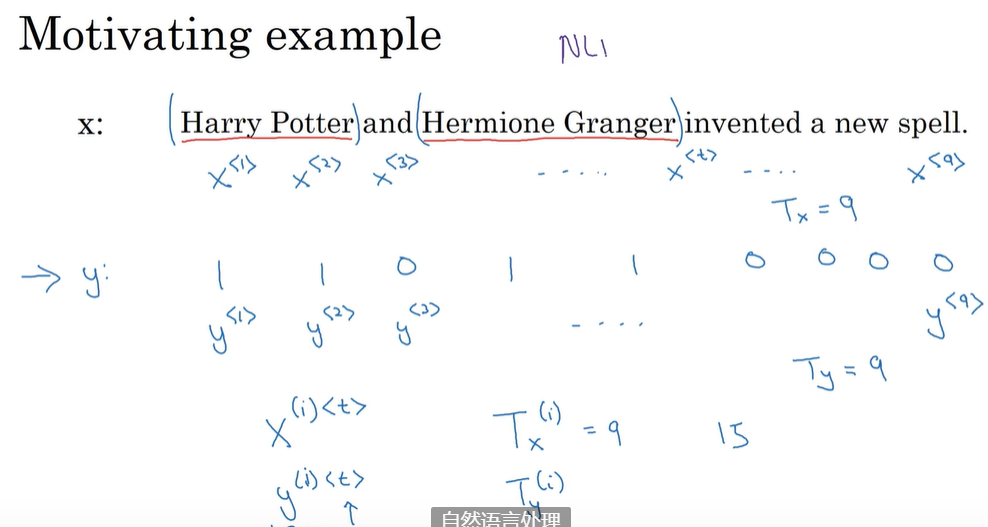 Motivating example
NLI
x: (Harry Potter) and (Hermione Granger) invented a new spell.
x<1> x<2> x<3> ..... x<t> .... x<9>
Tx = 9
→ y: 1 1 0 1 1 0 0 0 0
y<1> y<2> y<3> ..... y<9>
Ty = 9
X(i)<t> Tx(i) = 9 15
y(i)<t> Ty(i)
自然语言处理